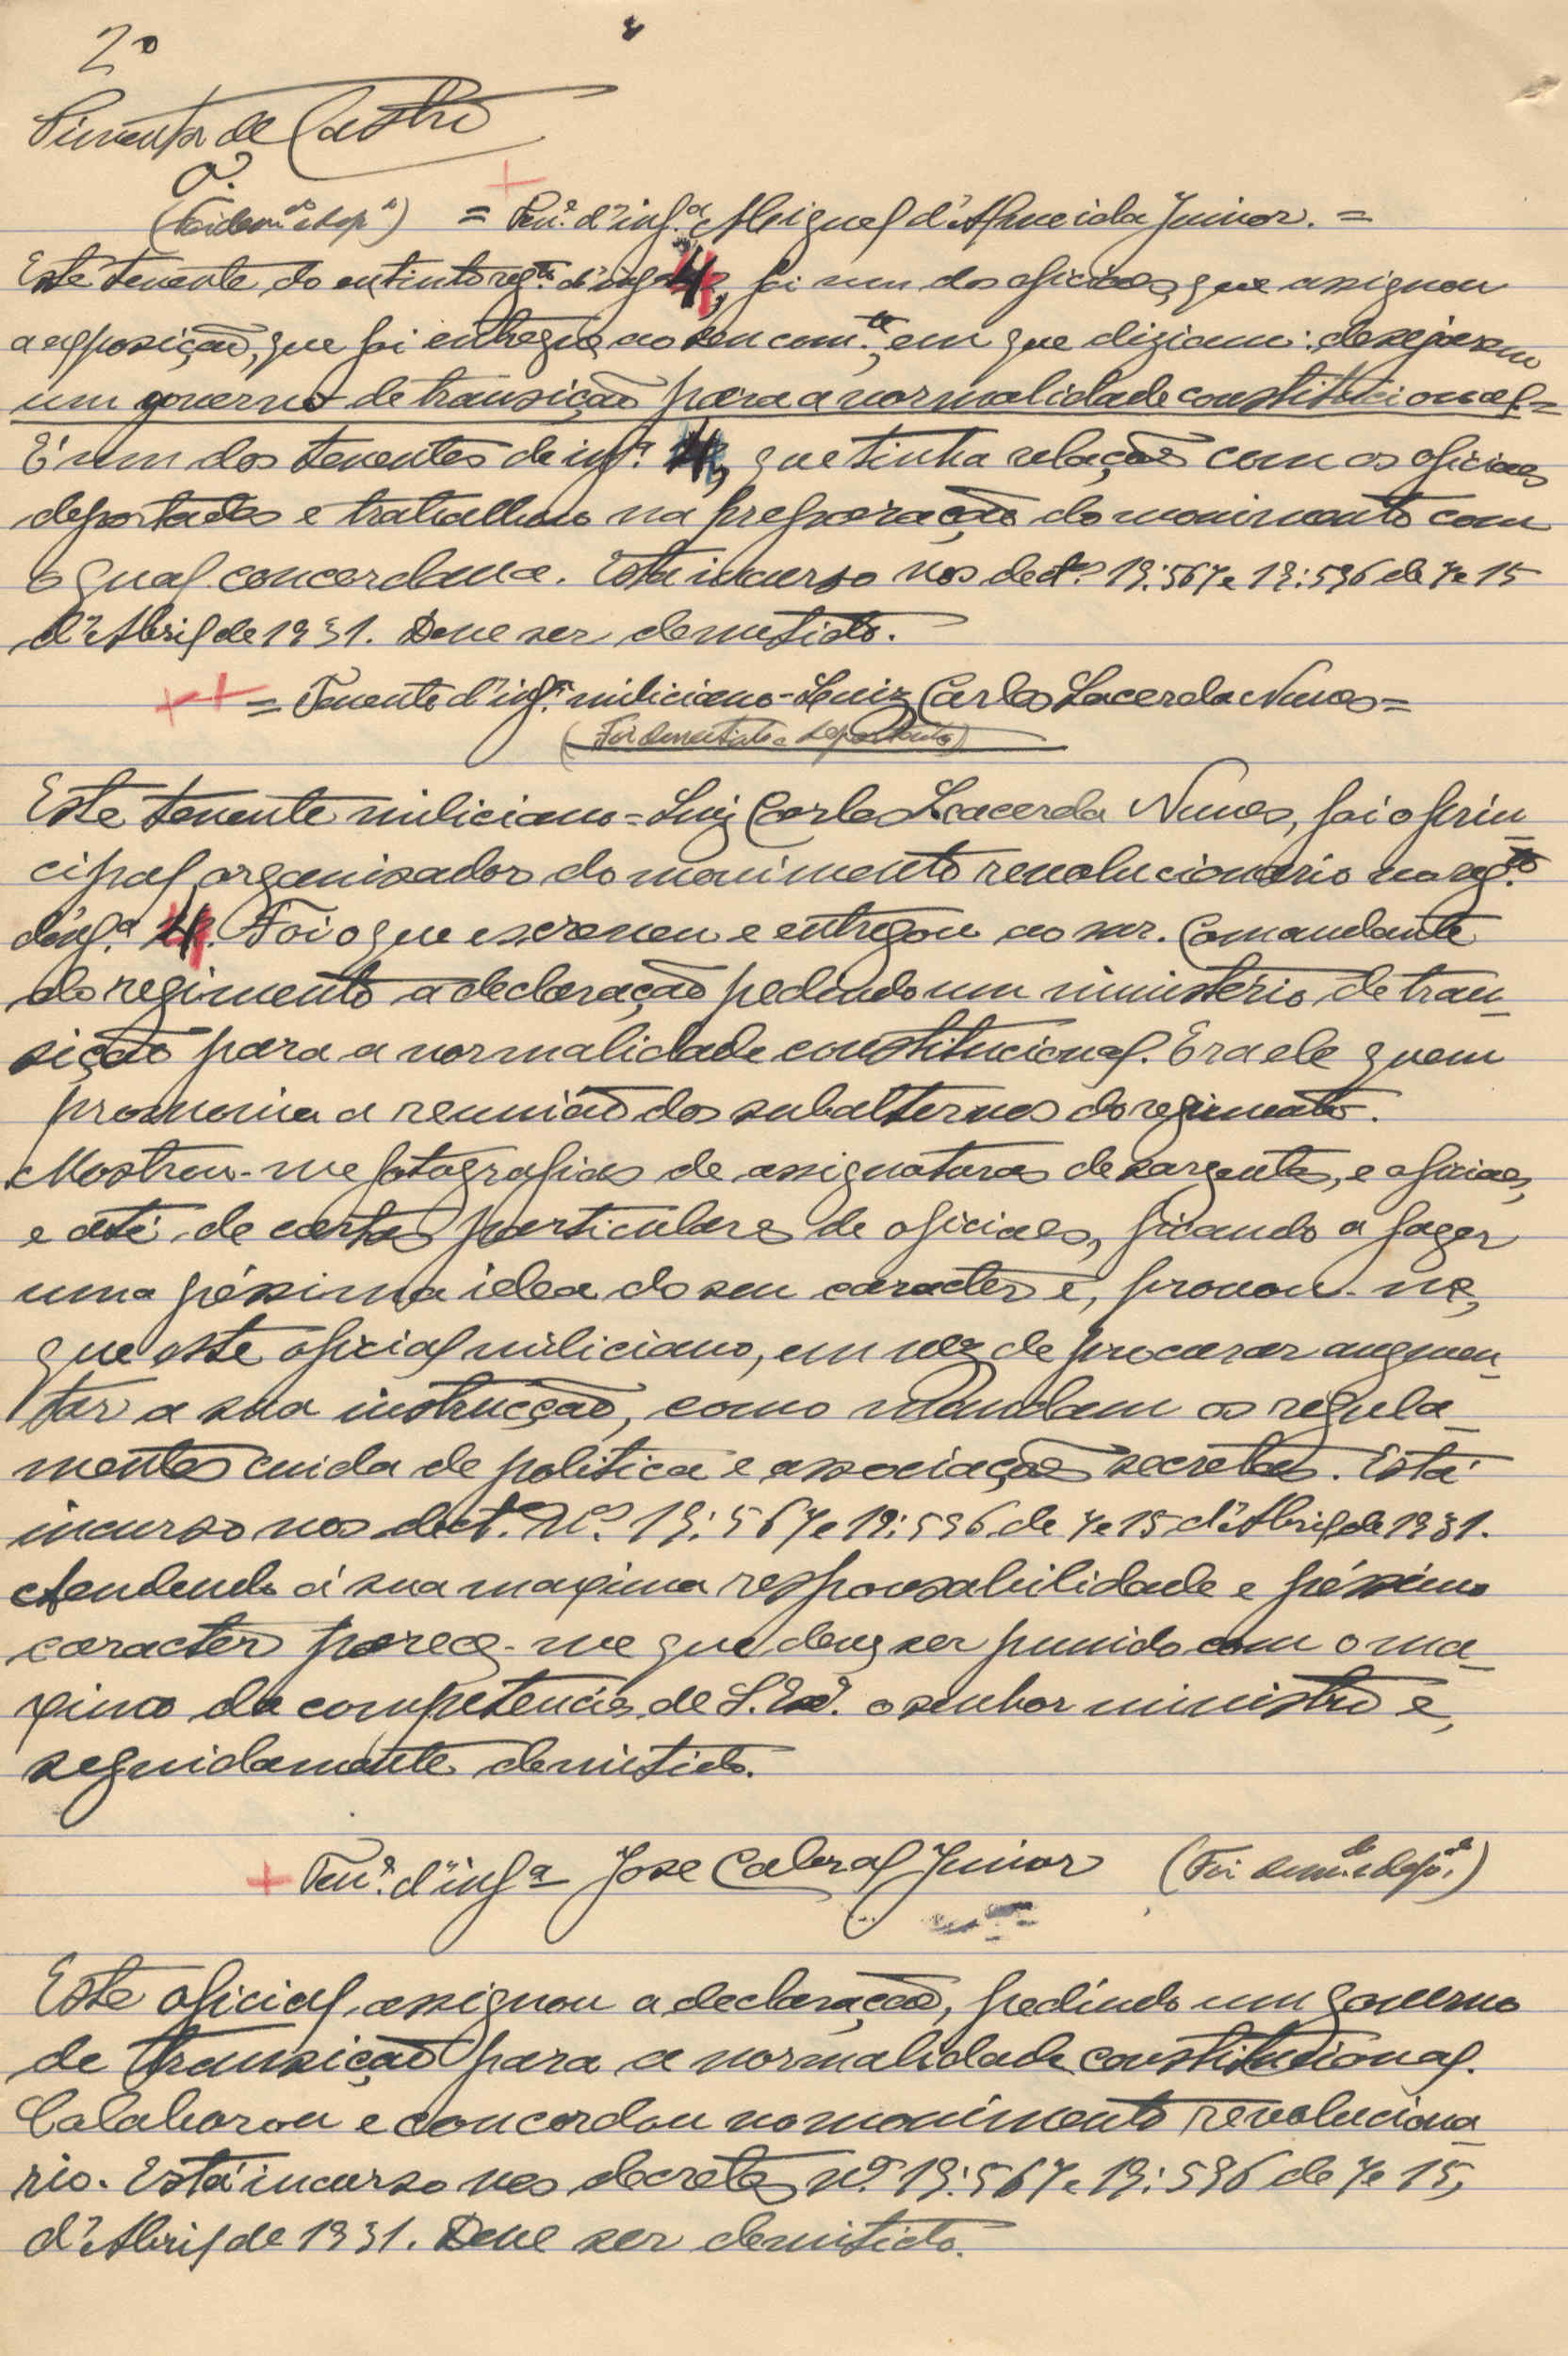 2º
Pimenta de Castro
(Foi dem.do e dep.do) = Ten.e d'inf.a Miguel d'Almeida Junior. =
Este tenente do extinto reg.to d'inf.a 4, foi um dos oficiaes, que assignou
a exposição, que foi entregue ao seu com.te, em que diziam: desejarem
um governo de transição para a normalidade constitucional =
É um dos tenentes de inf.a 4, que tinha relações com os oficiaes
deportados e trabalhou na preparação do movimento com
o qual concordava. Está incurso nos dect.os 19:567 e 19:596 de 7 e 15
d'Abril de 1931. Deve ser demitido.
= Tenente d'inf.a miliciano - Luiz Carlos Lacerda Nunes =
(Foi demitido e deportado)
Este tenente miliciano = Luiz Carlos Lacerda Nunes, foi o prin-
cipal organisador do movimento revolucionario no reg.to
d'inf.a 4. Foi o que escreveu e entregou ao snr. Comandante
do regimento a declaração pedindo um ministério de tran-
sição para a normalidade constitucional. Era ele quem
promovia a reunião dos subalternos do regimento.
Mostrou-me fotografias de assignaturas de sargentos, e oficiaes,
e até de cartas particulares de oficiaes, ficando a fazer
uma péssima idea do seu caracter e, provou-me,
que este oficial miliciano, em vez de procurar augmen-
tar a sua instrucção, como mandam os regula-
mentos cuida de politica e associações secretas. Está
incurso nos dect.os N.os 19:567 e 19:596 de 7 e 15 d'Abril de 1931.
Atendendo á sua maxima responsabilidade e péssimo
caracter parece-me que deve ser punido com o ma-
ximo da competencia de S. Ex.a o senhor ministro e,
seguidamente demitido.
Ten.e d'inf.a José Cabral Junior (Foi dem.do e dep.do)
Este oficial assignou a declaração, pedindo um governo
de transição para a normalidade constitucional.
Colaborou e concordou no movimento revoluciona-
rio. Está incurso nos decretos n.os 19:567 e 19:596 de 7 e 15,
d'Abril de 1931. Deve ser demitido.